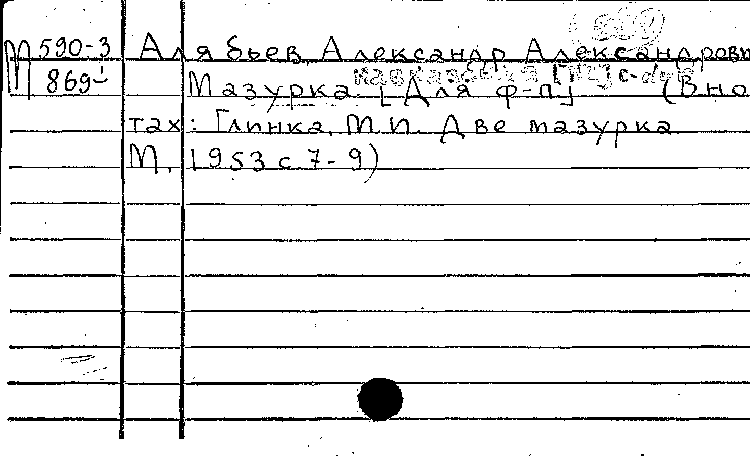 М 590-3 Алябьев Александр Александрови
869 Мазурка [Для ф-п] (В но
тах: Глинка, М.И. Две мазурка
М. 1953 с 7-9)